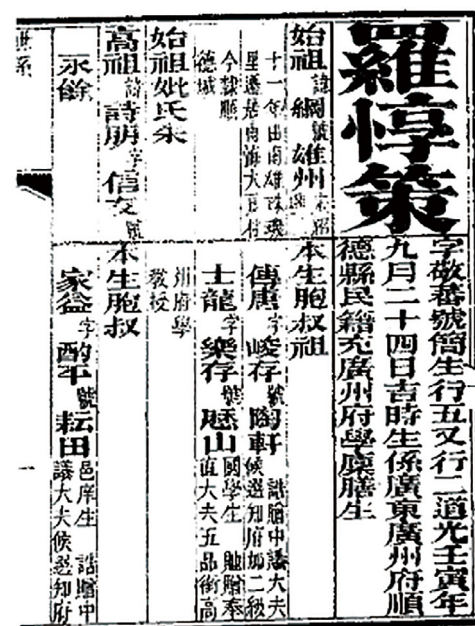 羅惇策
字敬菴號筒生行五又行二道光壬寅年
九月二十四日吉時生係廣東廣州府順
德縣民籍充廣州府學廩膳生
始祖諱綱號雄州宋紹
十一年由南雄珠璣
里遷居南海大
今隸順
德城
始祖妣氏朱
高祖諱詩朋字信交號
永餘
本生胞叔祖
傳唐字峻存號陶軒誥贈中議大夫
候選知府加二級
士龍字樂存號歷山國學生馳贈奉
直大夫五品銜高
州府學
教授
本生胞叔
家益字酌平號耘田邑庠生誥贈中
議大夫候選知府
世系
一